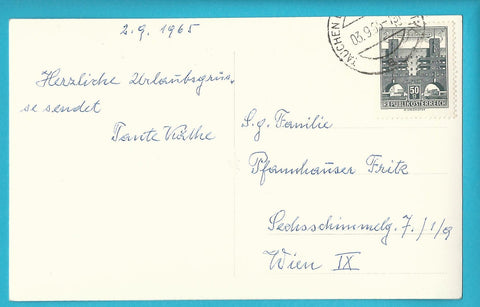 2.9.1965
Herzliche Urlaubsgrüs-
se sendet
Tante Käthe
TAUCHEN
03.9.65
50
REPUBLIK ÖSTERREICH
S.g. Familie
Pfannhauser Fritz
Sechsschimmelg. 7./1/9
Wien IX